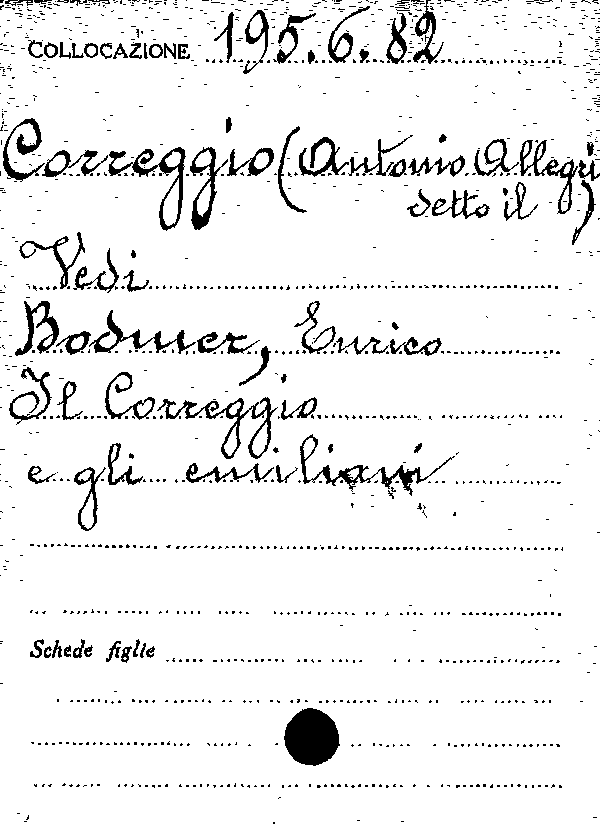 COLLOCAZIONE 195.6.82
Correggio (Antonio Allegri
detto il )
Vedi
Bodmer, Enrico
Il Correggio
e gli emiliani
Schede figlie